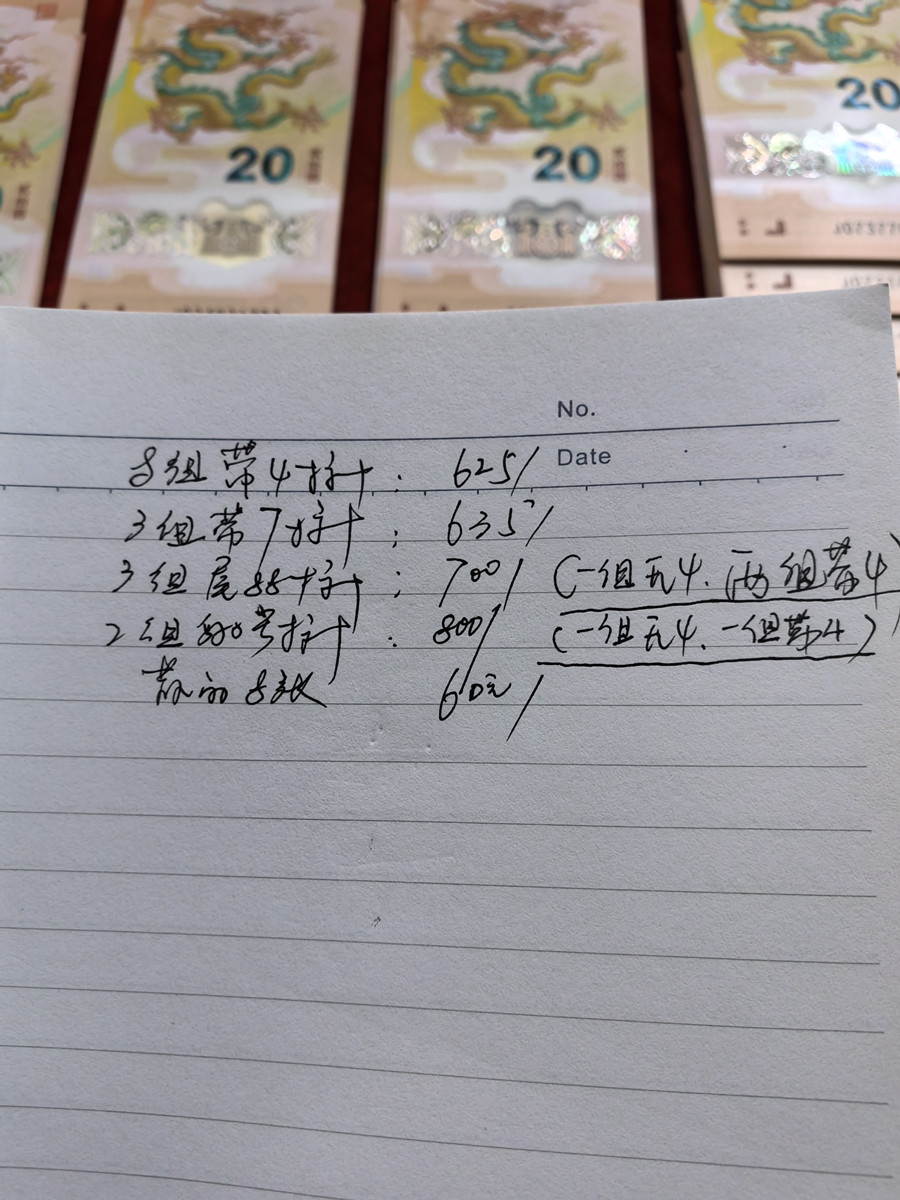 20
20
20
No.
Date
8组带4标十: 625/
3组带7标十: 635/
3组尾88标十: 700/ (一组无4、两组带4)
2组号标十: 800/ (一组无4、一组带4)
散的8张 60元/